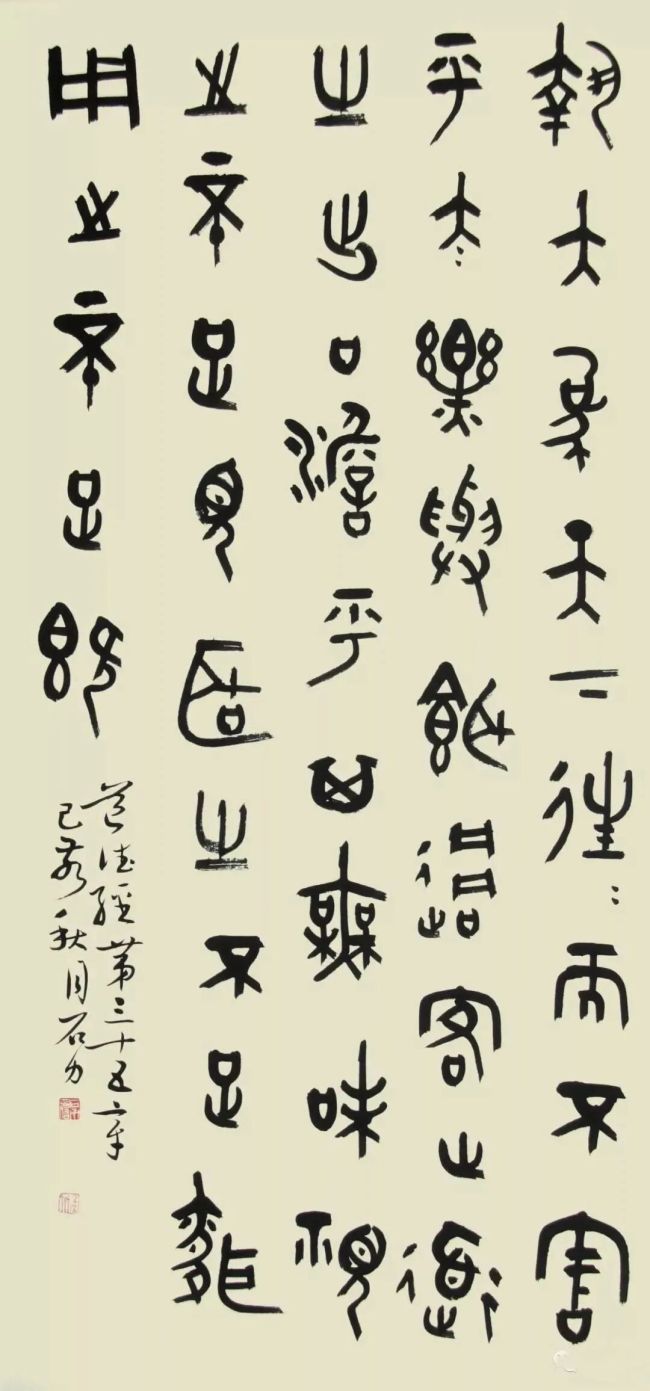 執大象天下往〻而不害
平太樂與餌過客止道
之出口澹乎其無味視
之不足見聽之不足聞
用之不足既
道德經第三十五章
己亥秋月石力